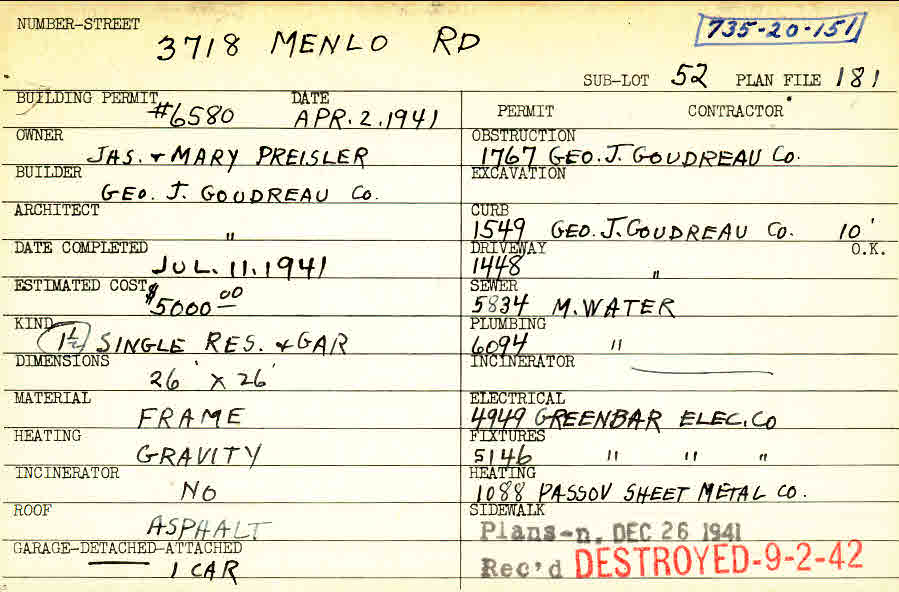 NUMBER-STREET
3718 MENLO RD
735-20-151
SUB-LOT 52 PLAN FILE 181
BUILDING PERMIT #6580 DATE APR. 2. 1941
OWNER
JAS. + MARY PREISLER
BUILDER
GEO. J. GOUDREAU CO.
ARCHITECT
"
DATE COMPLETED
JUL. 11. 1941
ESTIMATED COST $5000 00
KIND
1½ SINGLE RES. + GAR
DIMENSIONS
26' X 26'
MATERIAL
FRAME
HEATING
GRAVITY
INCINERATOR
NO
ROOF
ASPHALT
GARAGE-DETACHED-ATTACHED
1 CAR
PERMIT CONTRACTOR
OBSTRUCTION
1767 GEO. J. GOUDREAU CO.
EXCAVATION
CURB
1549 GEO. J. GOUDREAU CO. 10'
DRIVEWAY O.K.
1448 "
SEWER
5834 M. WATER
PLUMBING
6094 "
INCINERATOR
ELECTRICAL
4949 GREENBAR ELEC. CO
FIXTURES
5146 " " "
HEATING
1088 PASSOV SHEET METAL CO.
SIDEWALK
Plans-n. DEC 26 1941
Rec'd DESTROYED-9-2-42